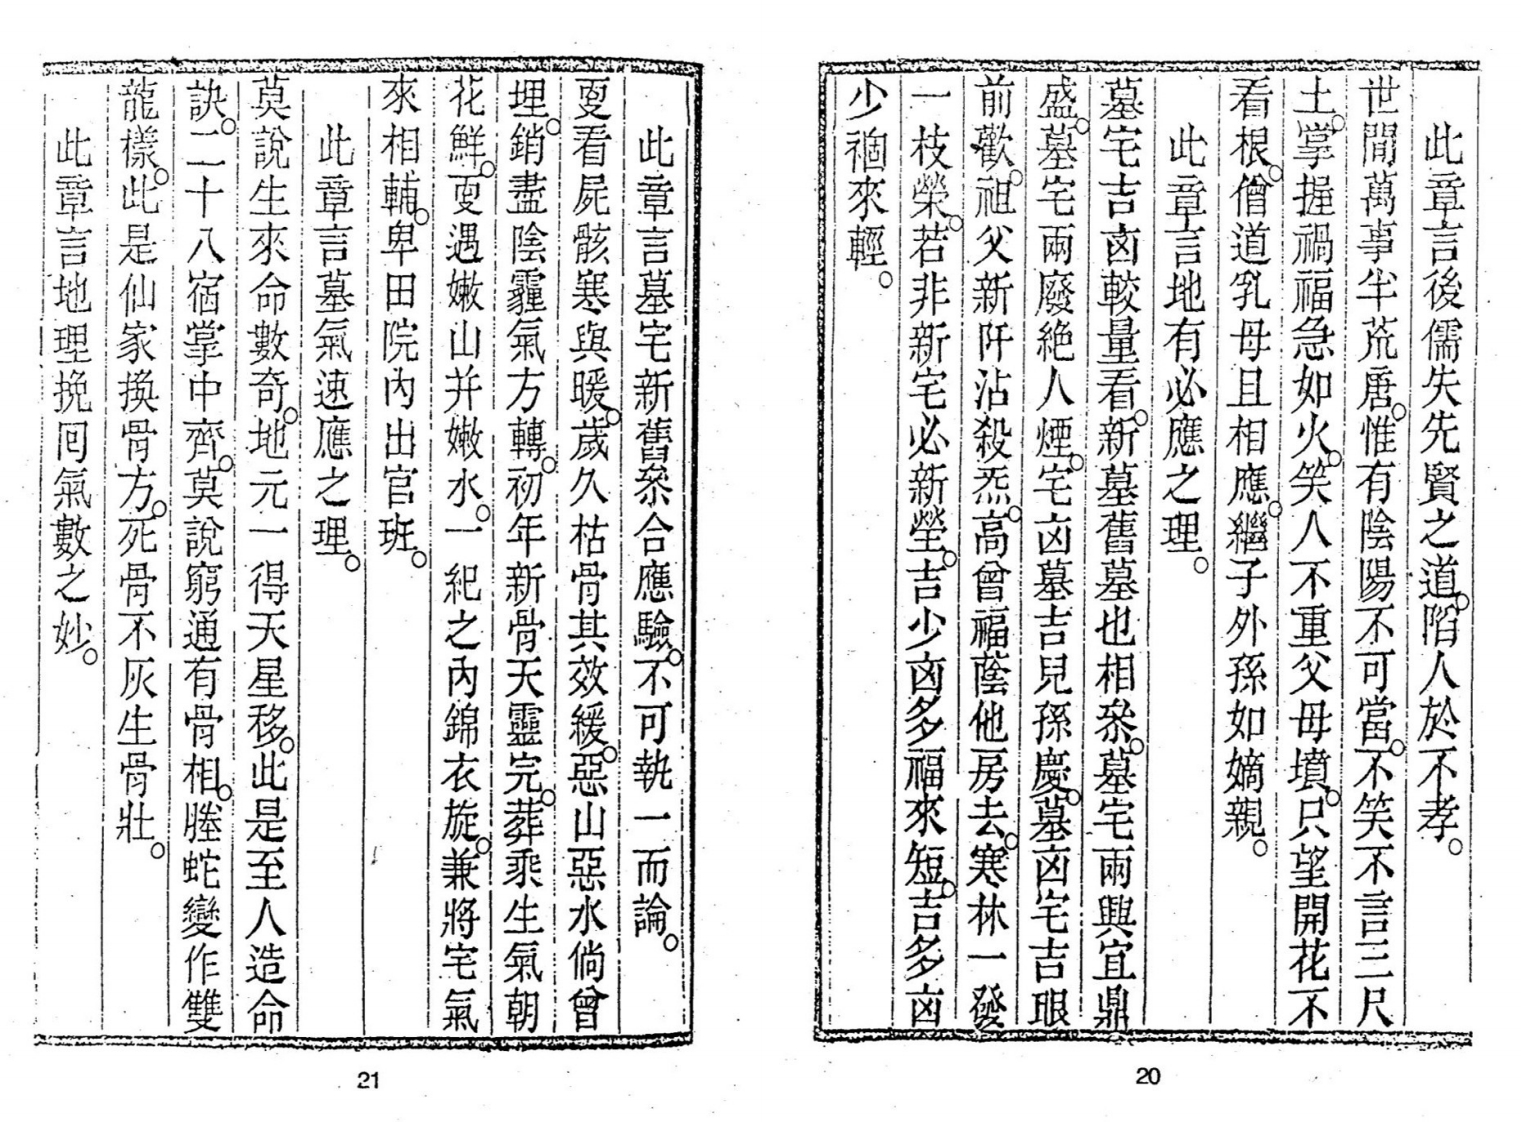 此章言後儒失先賢之道。陷人於不孝。
世間萬事半荒唐。惟有陰陽不可當。不笑不言三尺
土。掌握禍福急如火。笑人不重父母墳。只望開花不
看根。僧道乳母且相應。繼子外孫如嫡親。
此章言地有必應之理。
墓宅吉凶較量看。新墓舊墓也相叅。墓宅兩興宜鼎
盛。墓宅兩廢絶人煙。宅凶墓吉兒孫慶。墓凶宅吉眼
前歡。祖父新阡沾殺炁。高曾福蔭他房去。寒林一發
一枝榮。若非新宅必新塋。吉少凶多福來短。吉多凶
少禍來輕。
20
此章言墓宅新舊叅合應驗。不可執一而論。
更看屍骸寒與暖。歲久枯骨其效緩。惡山惡水倘曾
埋。銷盡陰霾氣方轉。初年新骨天靈完。葬乘生氣朝
花鮮。更遇嫩山并嫩水。一紀之內錦衣旋。兼將宅氣
來相輔。卑田院內出官班。
此章言墓氣速應之理。
莫說生來命數奇。地元一得天星移。此是至人造命
訣。二十八宿掌中齊。莫說窮通有骨相。螣蛇變作雙
龍樣。此是仙家換骨方。死骨不灰生骨壯。
此章言地理挽囘氣數之妙。
21